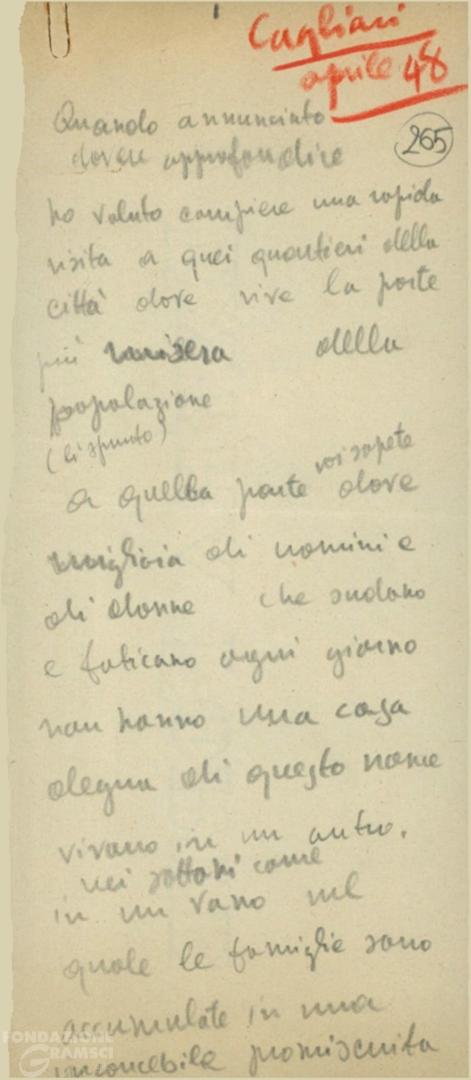 Cagliari
aprile 48
265
Quando annunciato
dover approfondire
ho voluto compiere una rapida
visita a quei quartieri della
città dove vive la parte
più misera della
popolazione
(li spunto)
voi sapete
a quella parte dove
migliaia di uomini e
di donne che sudano
e faticano ogni giorno
non hanno una casa
degna di questo nome
vivano in un antro.
nei sottani come
in un vano nel
quale le famiglie sono
accumulate in una
inconcebile promiscuità
FONDAZIONE
GRAMSCI